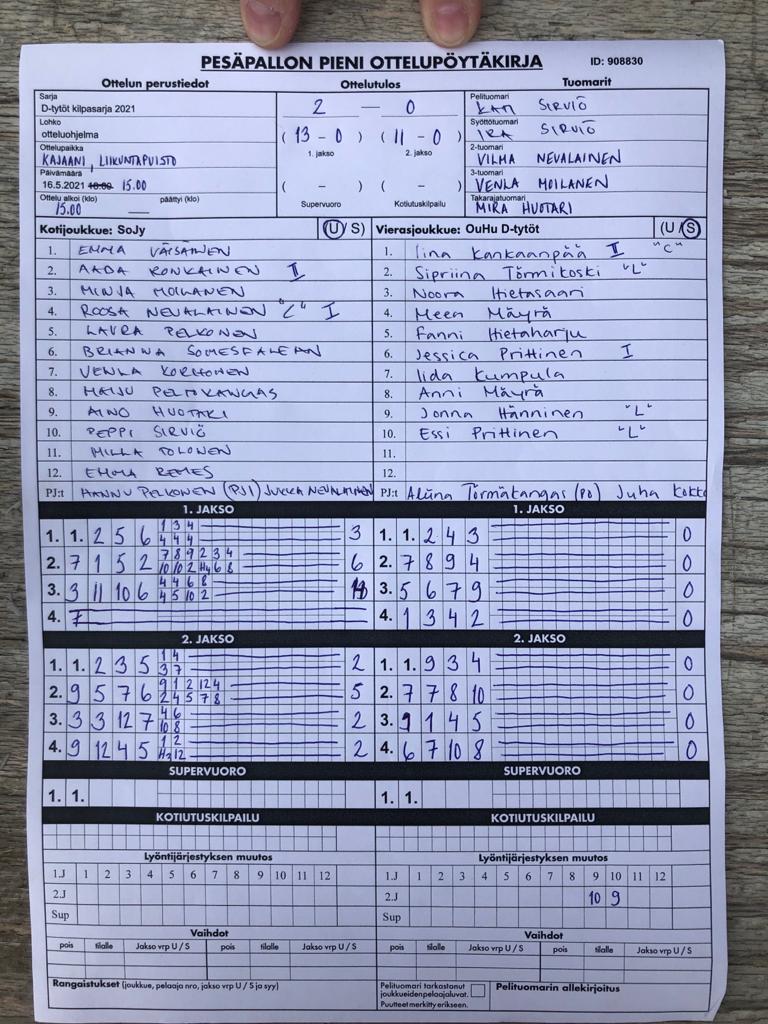 PESÄPALLON PIENI OTTELUPÖYTÄKIRJA ID: 908830
Ottelun perustiedot Ottelutulos Tuomarit
Sarja
D-tytöt kilpasarja 2021
Lohko
otteluohjelma
Ottelupaikka
KAJAANI, LIIKUNTAPUISTO
Päivämäärä
16.5.2021 18.00 15.00
Ottelu alkoi (klo) päättyi (klo)
15.00 —
2 — 0
(13 - 0) (11 - 0)
1. jakso 2. jakso
( - ) ( - )
Supervuoro Kotiutuskilpailu
Pelituomari
KATI SIRVIÖ
Syöttötuomari
IRA SIRVIÖ
2-tuomari
VILMA NEVALAINEN
3-tuomari
VENLA MOILANEN
Takarajatuomari
MIRA HUOTARI
Kotijoukkue: SoJy (U/S)
1. EMMA VÄISÄNEN
2. AADA RONKAINEN II
3. MINJA MOILANEN
4. ROOSA NEVALAINEN "C" I
5. LAURA PELKONEN
6. BRIANNA SOMESFALEAN
7. VENLA KORHONEN
8. MAIJU PELTOKANGAS
9. AINO HUOTARI
10. PEPPI SIRVIÖ
11. MILLA TOLONEN
12. EMMA REMES
PJ:t HANNU PELKONEN (PJ1) JUKKA NEVALAINEN
Vierasjoukkue: OuHu D-tytöt (U/S)
1. Iina Kankaanpää II "C"
2. Sipriina Törmikoski "L"
3. Noora Hietasaari
4. Meea Mäyrä
5. Fanni Hietaharju
6. Jessica Prittinen I
7. Iida Kumpula
8. Anni Mäyrä
9. Jonna Hänninen "L"
10. Essi Prittinen "L"
11.
12.
PJ:t Aliina Törmäkangas (PJ) Juha Kokko
1. JAKSO 1. JAKSO
1. 1. 2 5 6 1 3 4 3
4 4 4
2. 7 1 5 2 7 8 9 2 3 4 6
10 10 2 H4 6 8
3. 3 11 10 6 4 4 6 8 4
4 5 10 2
4. 7
1. 1. 2 4 3 0
2. 7 8 9 4 0
3. 5 6 7 9 0
4. 1 3 4 2 0
2. JAKSO 2. JAKSO
1. 1. 2 3 5 1 4 2
3 7
2. 9 5 7 6 9 1 2 12 4 5
2 4 5 7 8
3. 3 3 12 7 4 6 2
10 8
4. 9 12 4 5 1 2 2
H3 12
1. 1. 9 3 4 0
2. 7 7 8 10 0
3. 9 1 4 5 0
4. 6 7 10 8 0
SUPERVUORO SUPERVUORO
1. 1. 1. 1.
KOTIUTUSKILPAILU KOTIUTUSKILPAILU
Lyöntijärjestyksen muutos Lyöntijärjestyksen muutos
1.J 1 2 3 4 5 6 7 8 9 10 11 12 1.J 1 2 3 4 5 6 7 8 9 10 11 12
2.J 2.J 10 9
Sup Sup
Vaihdot Vaihdot
pois tilalle Jakso vrp U / S pois tilalle Jakso vrp U / S pois tilalle Jakso vrp U / S pois tilalle Jakso vrp U / S
Rangaistukset (joukkue, pelaaja nro, jakso vrp U / S ja syy)
Pelituomari tarkastanut
joukkueidenpelaajaluvat.
Puutteet merkitty erikseen.
Pelituomarin allekirjoitus